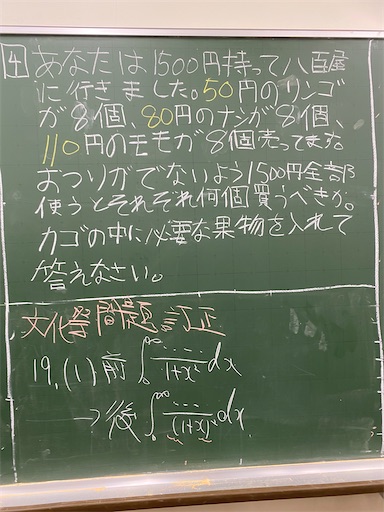 4 あなたは1500円持って八百屋
に行きました。50円のリンゴ
が8個、80円のナシが8個、
110円のモモが8個売ってます。
おつりがでないよう1500円全部
使うとそれぞれ何個買うべきか。
カゴの中に必要な果物を入れて
答えなさい。
文化祭問題訂正
19.(1)前 ∫₀^∞ …/1+x² dx
→後 ∫₀^∞ …/(1+x)² dx